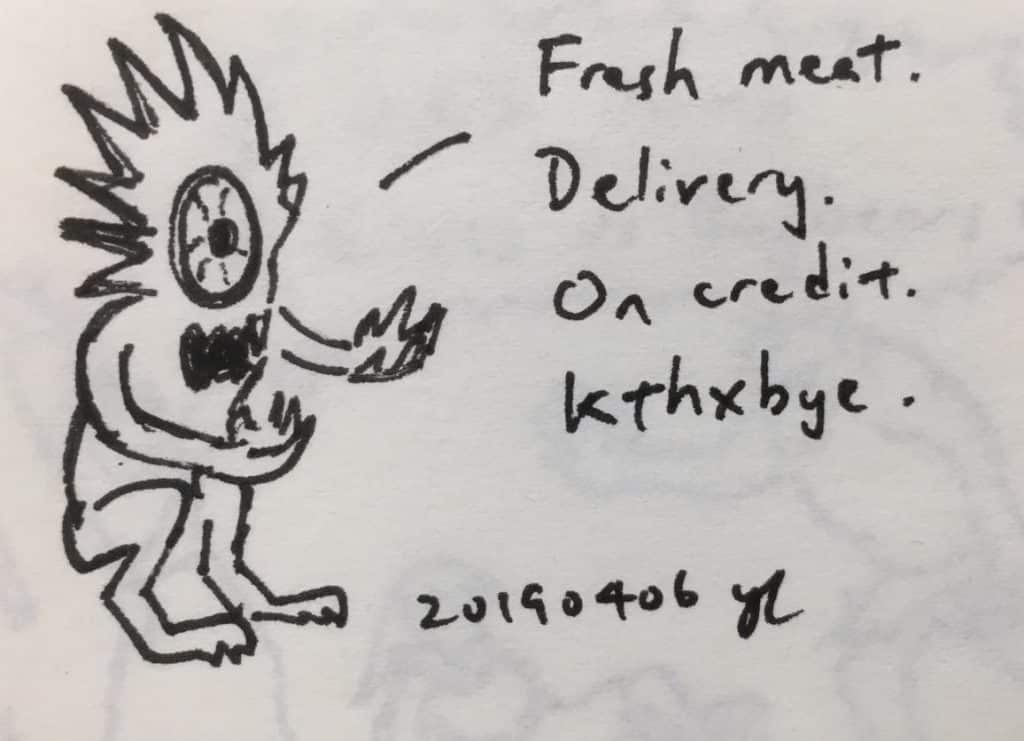 Fresh meat.
Delivery.
On credit.
kthxbye.
20190406 yl